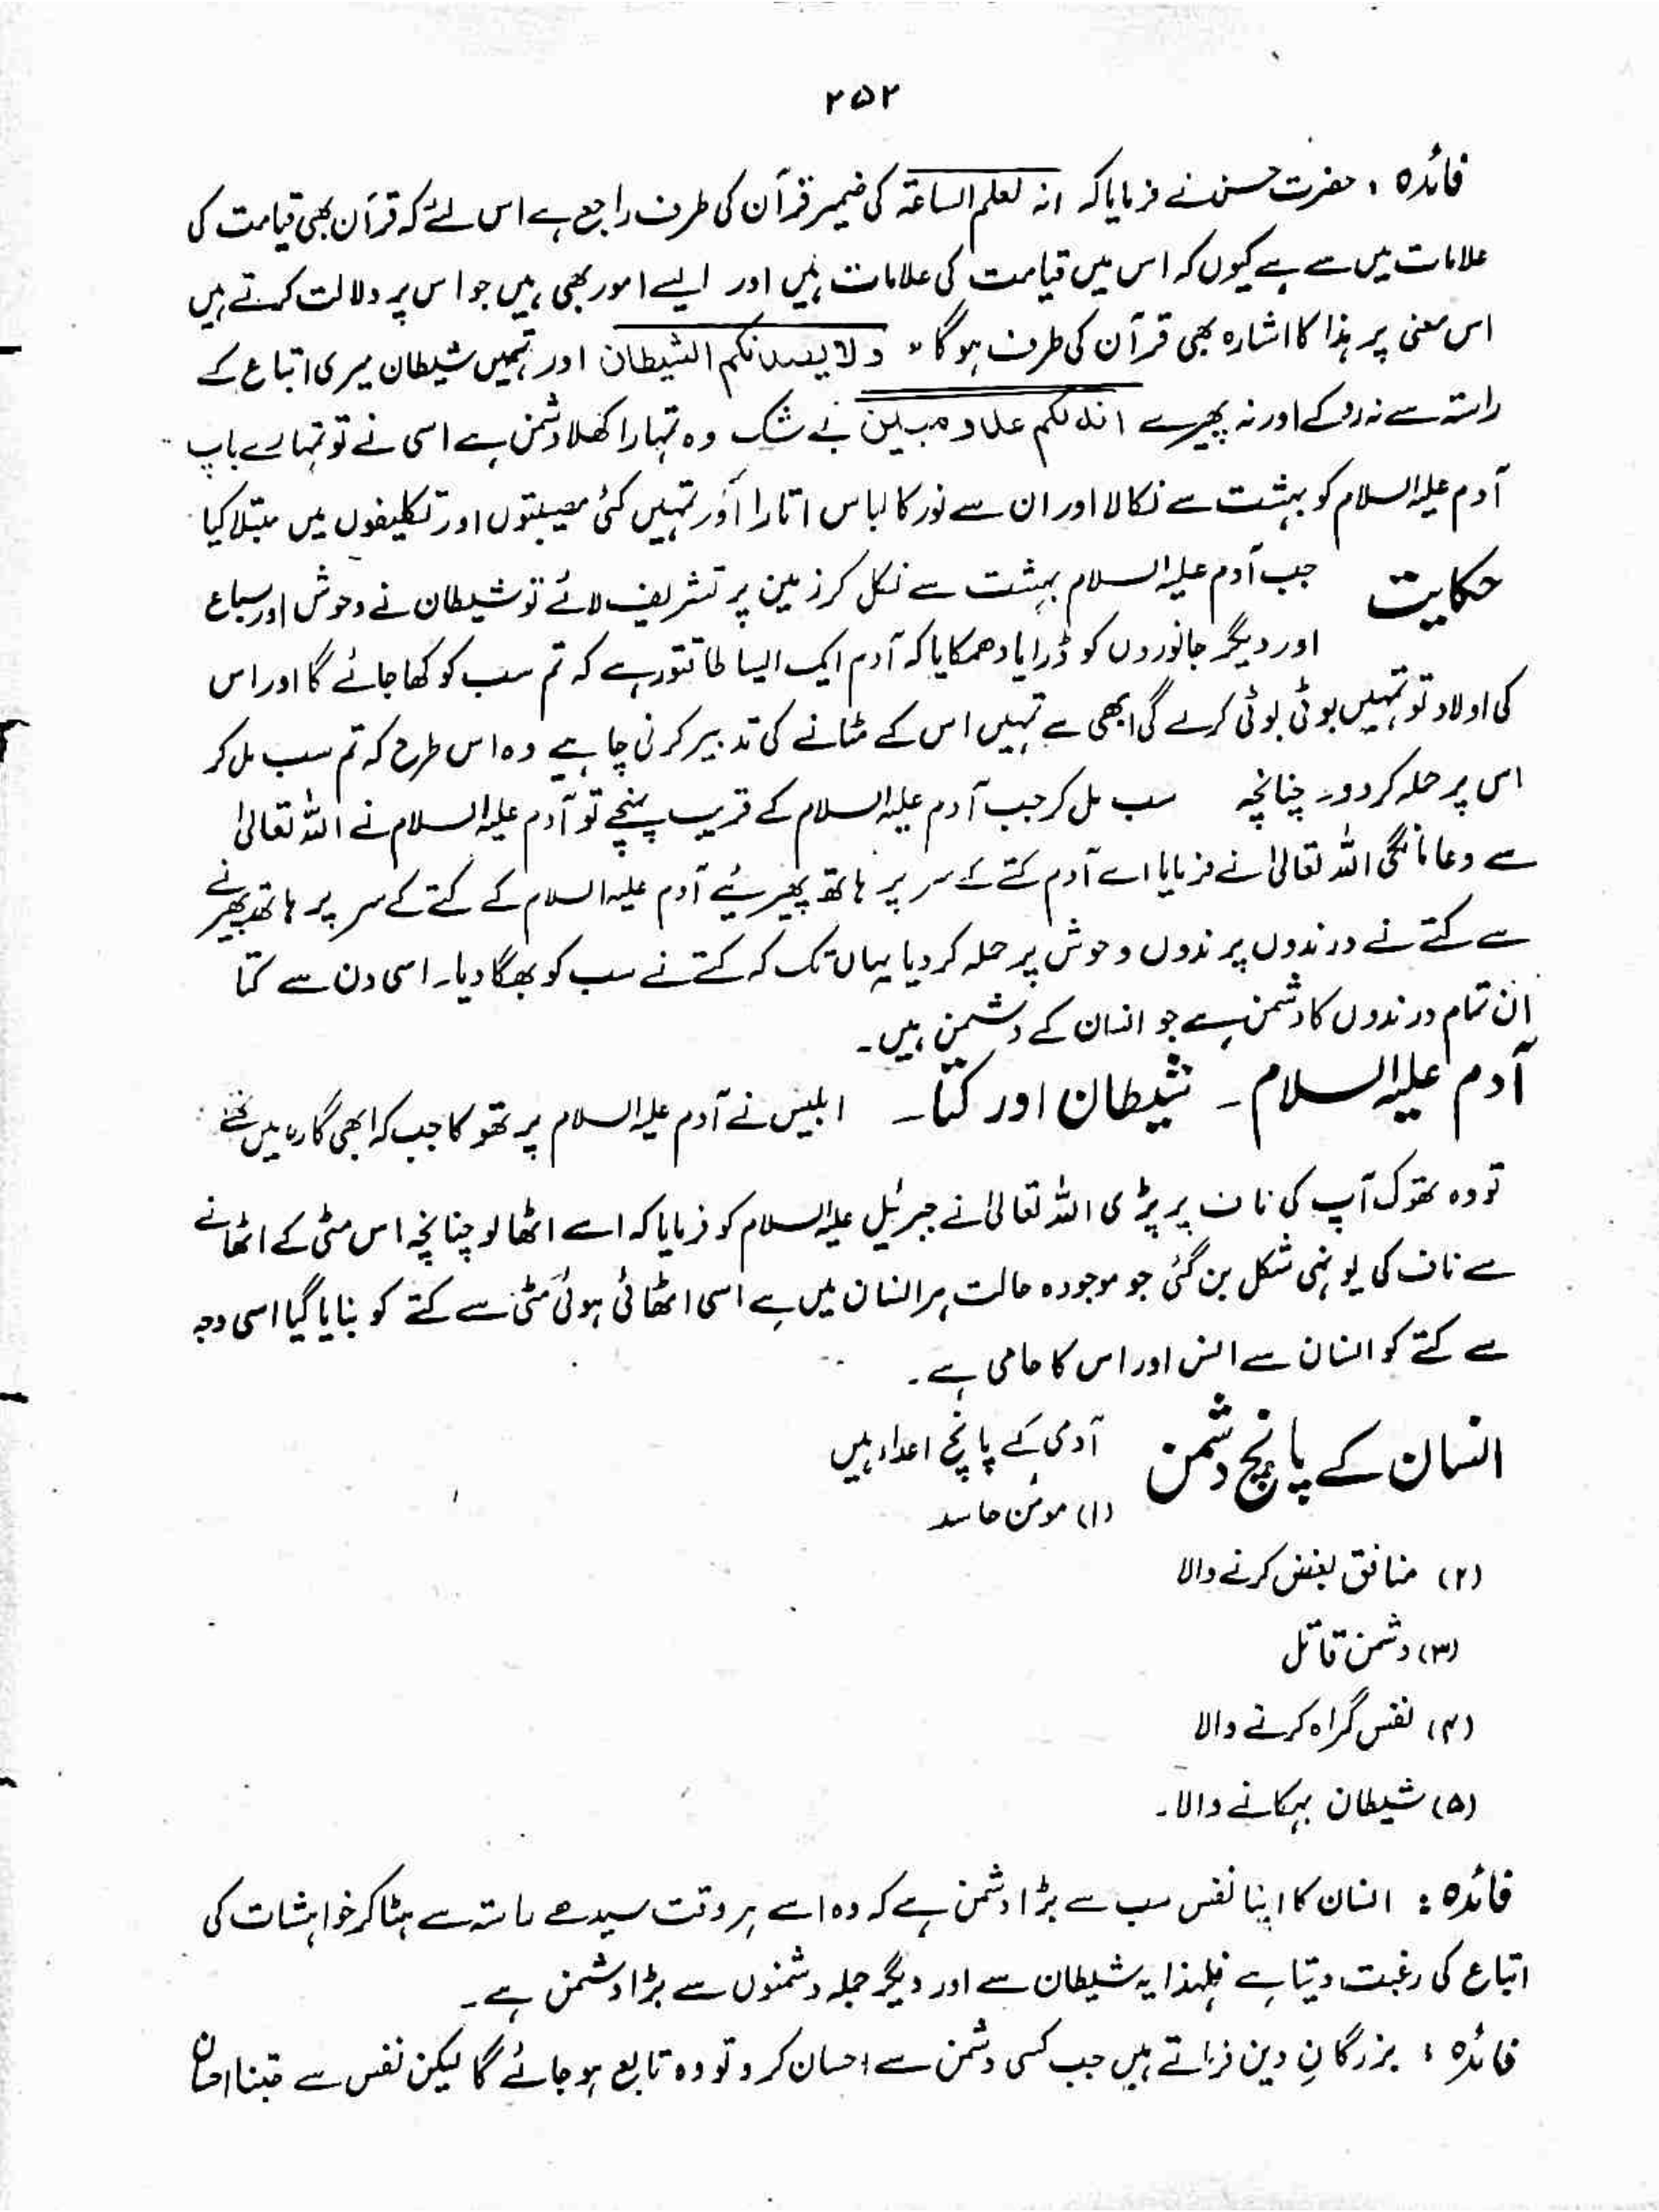 ۲۵۲
فائدہ : حضرت حسن نے فرمایا کہ انہ لعلم الساعۃ کی ضمیر قرآن کی طرف راجع ہے اس لئے کہ قرآن بھی قیامت کی
علامات میں سے ہے کیوں کہ اس میں قیامت کی علامات ہیں اور ایسے امور بھی ہیں جو اس پر دلالت کرتے ہیں
اس معنی پر ہذا کا اشارہ بھی قرآن کی طرف ہوگا " ولا یصدنکم الشیطان اور تمہیں شیطان میری اتباع کے
راستہ سے نہ روکے اور نہ پھیرے انہ لکم عدو مبین بے شک وہ تمہارا کھلا دشمن ہے اسی نے تو تمہارے باپ
آدم علیہ السلام کو بہشت سے نکالا اور ان سے نور کا لباس اتارا اور تمہیں کئی مصیبتوں اور تکلیفوں میں مبتلا کیا
حکایت جب آدم علیہ السلام بہشت سے نکل کر زمین پر تشریف لائے تو شیطان نے وحوش اور سباع
اور دیگر جانوروں کو ڈرایا دھمکایا کہ آدم ایک ایسا طاقتور ہے کہ تم سب کو کھا جائے گا اور اس
کی اولاد تو تمہیں بوٹی بوٹی کرے گی ابھی سے تمہیں اس کے مٹانے کی تدبیر کرنی چاہیے وہ اس طرح کہ تم سب مل کر
اس پر حملہ کردو۔ چنانچہ سب مل کر جب آدم علیہ السلام کے قریب پہنچے تو آدم علیہ السلام نے اللہ تعالیٰ
سے دعا مانگی اللہ تعالیٰ نے فرمایا اے آدم کتے کے سر پر ہاتھ پھیریئے آدم علیہ السلام کے کتے کے سر پر ہاتھ پھیرنے
سے کتے نے درندوں پرندوں وحوش پر حملہ کردیا یہاں تک کہ کتے نے سب کو بھگا دیا۔ اسی دن سے کتا
ان تمام درندوں کا دشمن ہے جو انسان کے دشمن ہیں۔
آدم علیہ السلام۔ شیطان اور کتا۔ ابلیس نے آدم علیہ السلام پر تھوکا جب کہ ابھی گارہ میں تھے
تو وہ تھوک آپ کی ناف پر پڑی اللہ تعالیٰ نے جبرئیل علیہ السلام کو فرمایا کہ اسے اٹھا لو چنانچہ اس مٹی کے اٹھانے
سے ناف کی یونہی شکل بن گئی جو موجودہ حالت ہر انسان میں ہے اسی اٹھائی ہوئی مٹی سے کتے کو بنایا گیا اسی وجہ
سے کتے کو انسان سے انس اور اس کا حامی ہے۔
انسان کے پانچ دشمن آدمی کے پانچ اعداء ہیں
(۱) مومن حاسد
(۲) منافق بغض کرنے والا
(۳) دشمن قاتل
(۴) نفس گمراہ کرنے والا
(۵) شیطان بہکانے والا۔
فائدہ : انسان کا اپنا نفس سب سے بڑا دشمن ہے کہ وہ اسے ہر وقت سیدھے راستہ سے ہٹا کر خواہشات کی
اتباع کی رغبت دیتا ہے فلہذا یہ شیطان سے اور دیگر جملہ دشمنوں سے بڑا دشمن ہے۔
فائدہ : بزرگانِ دین فرماتے ہیں جب کسی دشمن سے احسان کرو تو وہ تابع ہو جائے گا لیکن نفس سے جتنا احسان